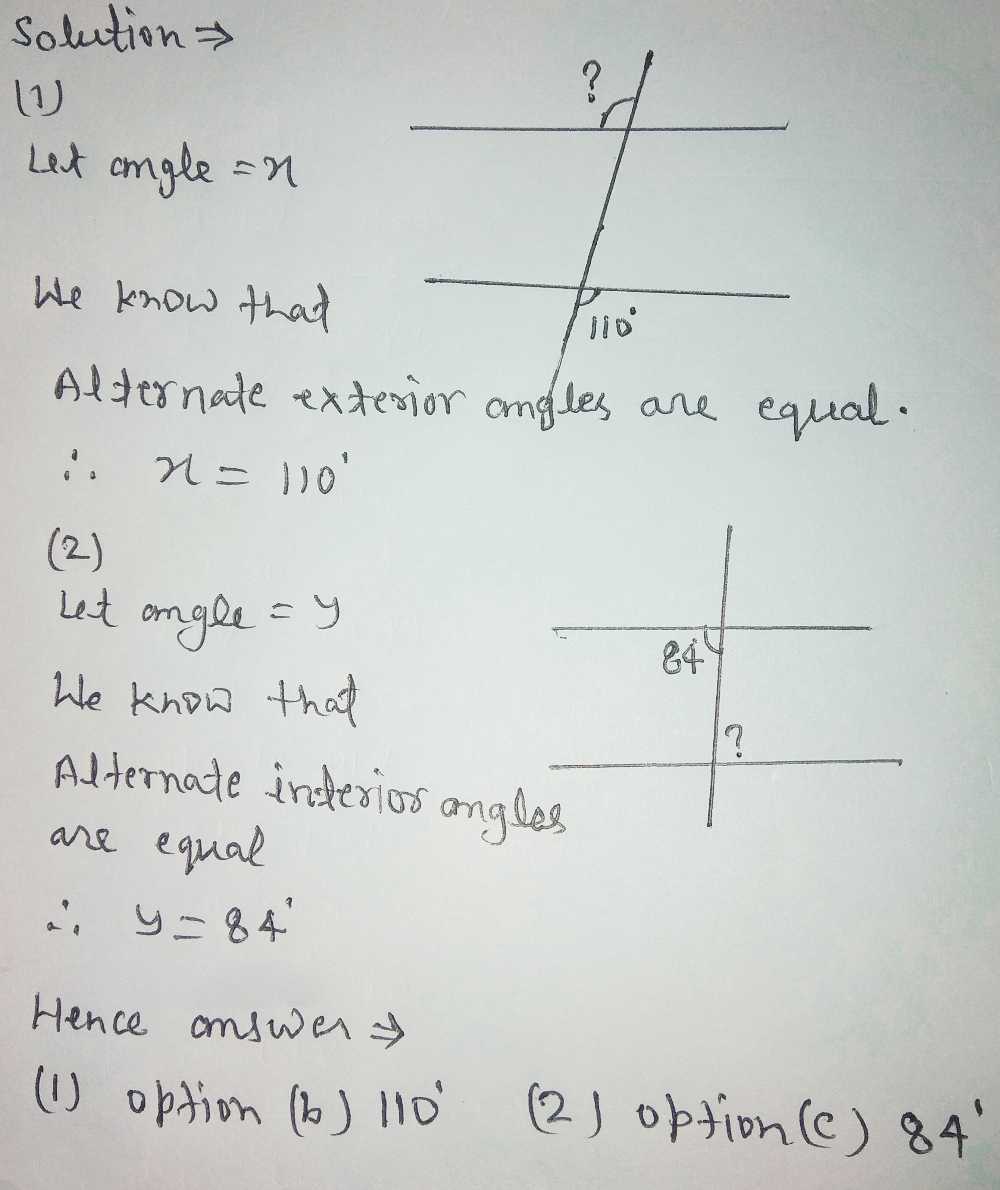 Solution ⇒
(1)
?
Let angle = x
We know that
110°
Alternate exterior angles are equal.
∴ x = 110°
(2)
Let angle = y
84°
We know that
?
Alternate interior angles
are equal
∴ y = 84°
Hence answer ⇒
(1) option (b) 110° (2) option (c) 84°